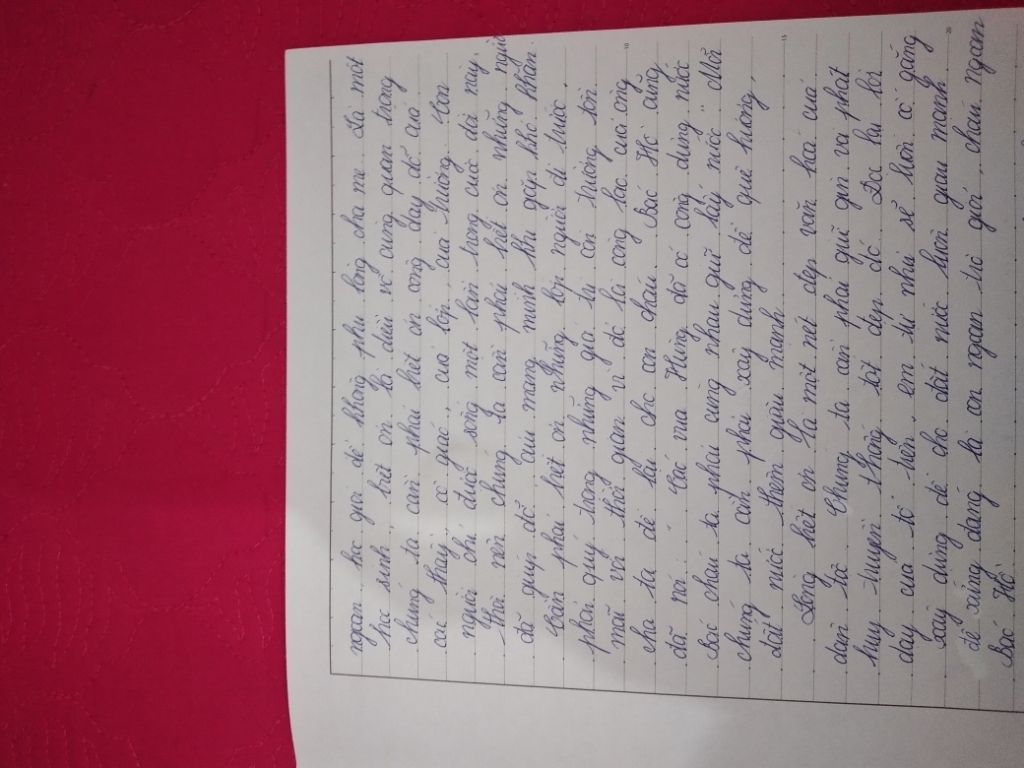 ngoan học giỏi để không phụ lòng cha mẹ. Là một
học sinh, biết ơn là điều vô cùng quan trọng
chúng ta cần phải biết ơn công dạy dỗ của
các thầy cô giáo, của lớp, của trường. Con
người chỉ được sống một lần trong cuộc đời này,
Thế nên chúng ta cần phải biết ơn những người
đã giúp đỡ, cưu mang mình khi gặp khó khăn.
Cần phải biết ơn những lớp người đi trước,
phải quý trọng những giá trị còn trường tồn
mãi với thời gian vì đó là công lao của ông
cha ta để lại cho con cháu. Bác Hồ cũng
đã nói " Các vua Hùng đã có công dựng nước
Bác cháu ta phải cùng nhau giữ lấy nước". Mỗi
chúng ta cần phải xây dựng để quê hương,
đất nước thêm giàu mạnh.
Lòng biết ơn là một nét đẹp văn hoá của
dân tộc. Chúng ta cần phải giữ gìn và phát
huy truyền thống tốt đẹp đó. Là hai lời
dạy của tổ tiên, em tự nhủ sẽ luôn cố gắng
xây dựng để cho đất nước luôn giàu mạnh
để xứng đáng là con ngoan trò giỏi, cháu ngoan
Bác Hồ.